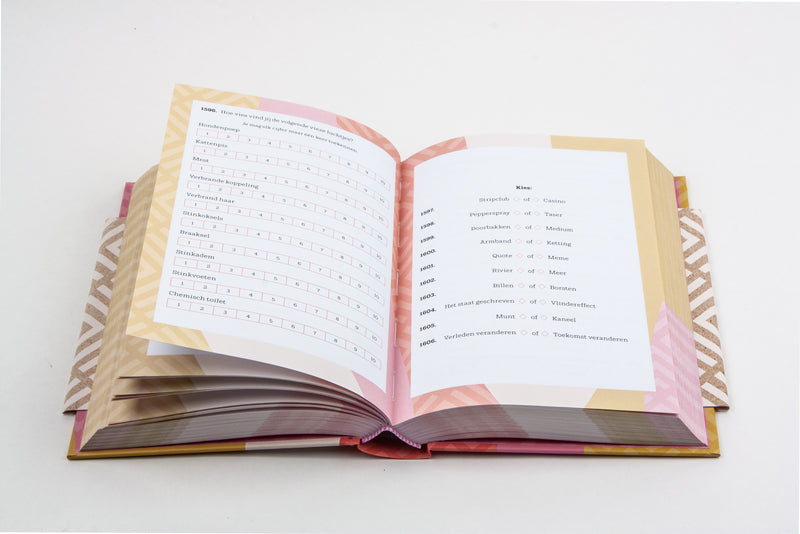 1596. Hoe vies vind jij de volgende vieze luchtjes?
Je mag elk cijfer maar één keer toekennen.
Hondenpoep
1 2 3 4 5 6 7 8 9 10
Kattenpis
1 2 3 4 5 6 7 8 9 10
Mest
1 2 3 4 5 6 7 8 9 10
Verbrande koppeling
1 2 3 4 5 6 7 8 9 10
Verbrand haar
1 2 3 4 5 6 7 8 9 10
Stinkoksels
1 2 3 4 5 6 7 8 9 10
Braaksel
1 2 3 4 5 6 7 8 9 10
Stinkadem
1 2 3 4 5 6 7 8 9 10
Stinkvoeten
1 2 3 4 5 6 7 8 9 10
Chemisch toilet
1 2 3 4 5 6 7 8 9 10
Kies:
1597. Stripclub of Casino
1598. Pepperspray of Taser
1599. Doorbakken of Medium
1600. Armband of Ketting
1601. Quote of Meme
1602. Rivier of Meer
1603. Billen of Borsten
1604. Het staat geschreven of Vlindereffect
1605. Munt of Kaneel
1606. Verleden veranderen of Toekomst veranderen